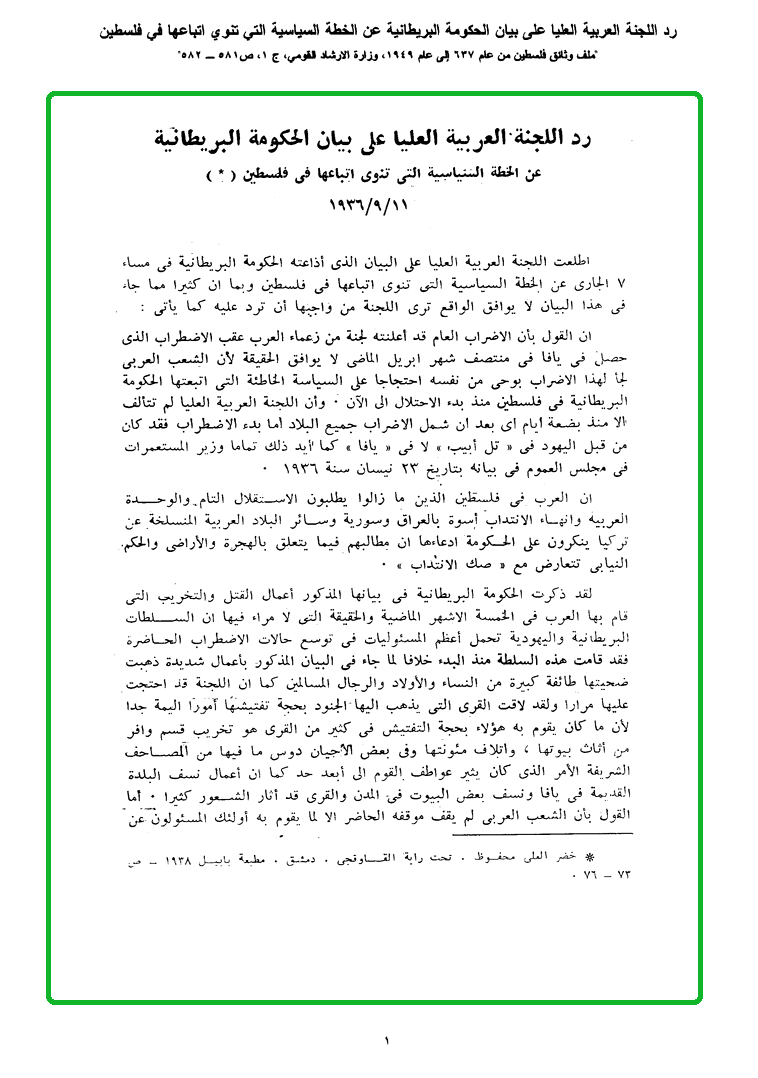 رد اللجنة العربية العليا على بيان الحكومة البريطانية عن الخطة السياسية التي تنوي اتباعها في فلسطين
"ملف وثائق فلسطين من عام ٦٣٧ إلى عام ١٩٤٩، وزارة الارشاد القومي، ج ١، ص ٥٨١ – ٥٨٢"
رد اللجنة العربية العليا على بيان الحكومة البريطانية
عن الخطة السياسية التى تنوى اتباعها فى فلسطين ( * )
١٩٣٦/٩/١١
اطلعت اللجنة العربية العليا على البيان الذى أذاعته الحكومة البريطانية فى مساء
٧ الجارى عن الخطة السياسية التى تنوى اتباعها فى فلسطين وبما ان كثيرا مما جاء
فى هذا البيان لا يوافق الواقع ترى اللجنة من واجبها أن ترد عليه كما يأتى :
ان القول بأن الاضراب العام قد أعلنته لجنة من زعماء العرب عقب الاضطراب الذى
حصل فى يافا فى منتصف شهر ابريل الماضى لا يوافق الحقيقة لأن الشعب العربى
لجأ لهذا الاضراب بوحى من نفسه احتجاجا على السياسة الخاطئة التى اتبعتها الحكومة
البريطانية فى فلسطين منذ بدء الاحتلال الى الآن ٠ وأن اللجنة العربية العليا لم تتألف
الا منذ بضعة أيام اى بعد ان شمل الاضراب جميع البلاد أما بدء الاضطراب فقد كان
من قبل اليهود فى « تل أبيب » لا فى « يافا » كما أيد ذلك تماما وزير المستعمرات
فى مجلس العموم فى بيانه بتاريخ ٢٣ نيسان سنة ١٩٣٦ ٠
ان العرب فى فلسطين الذين ما زالوا يطلبون الاستقلال التام والوحدة
العربية وانهاء الانتداب أسوة بالعراق وسورية وسائر البلاد العربية المنسلخة عن
تركيا ينكرون على الحكومة ادعاءها ان مطالبهم فيما يتعلق بالهجرة والأراضى والحكم
النيابى تتعارض مع « صك الانتداب » ٠
لقد ذكرت الحكومة البريطانية فى بيانها المذكور أعمال القتل والتخريب التى
قام بها العرب فى الخمسة الاشهر الماضية والحقيقة التى لا مراء فيها ان السلطات
البريطانية واليهودية تحمل أعظم المسئوليات فى توسع حالات الاضطراب الحاضرة
فقد قامت هذه السلطة منذ البدء خلافا لما جاء فى البيان المذكور بأعمال شديدة ذهبت
ضحيتها طائفة كبيرة من النساء والأولاد والرجال المسالمين كما ان اللجنة قد احتجت
عليها مرارا ولقد لاقت القرى التى يذهب اليها الجنود بحجة تفتيشها أمورا اليمة جدا
لأن ما كان يقوم به هؤلاء بحجة التفتيش فى كثير من القرى هو تخريب قسم وافر
من أثاث بيوتها ، واتلاف مئونتها وفى بعض الأحيان دوس ما فيها من المصاحف
الشريفة الأمر الذى كان يثير عواطف القوم الى أبعد حد كما ان أعمال نسف البلدة
القديمة فى يافا ونسف بعض البيوت فى المدن والقرى قد أثار الشعور كثيرا ٠ أما
القول بأن الشعب العربى لم يقف موقفه الحاضر الا لما يقوم به أولئك المسئولون عن
* خضر العلى محفوظ . تحت راية القاوقجى . دمشق . مطبعة بابيل ١٩٣٨ – ص
٧٣ – ٧٦ ٠
١